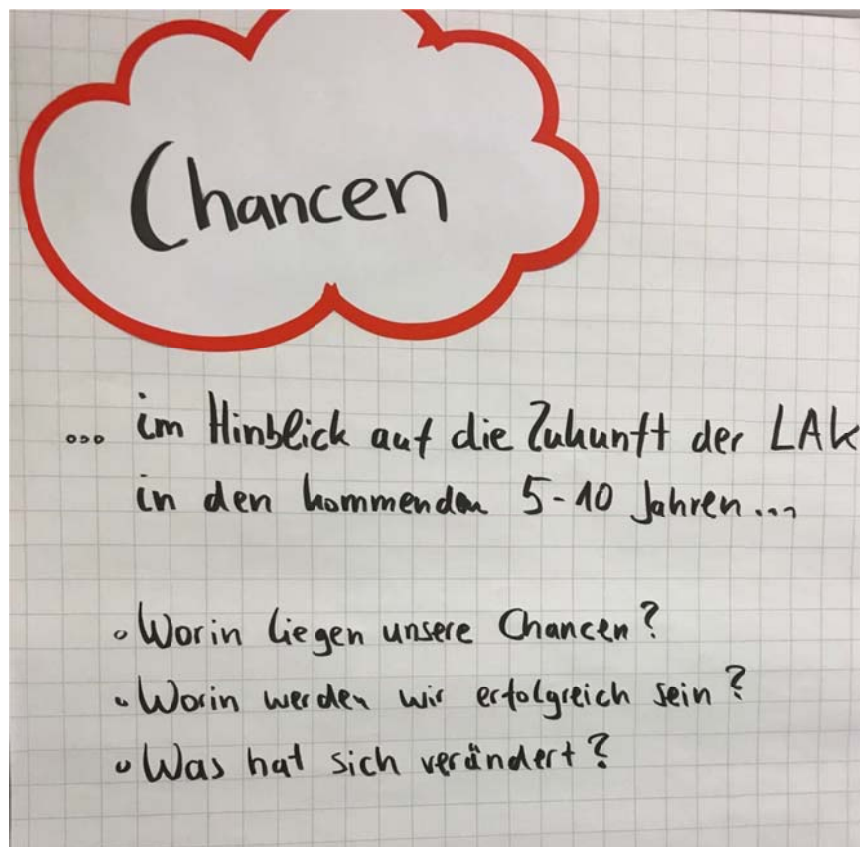 Chancen
... im Hinblick auf die Zukunft der LAK
in den kommenden 5-10 Jahren...
• Worin liegen unsere Chancen?
• Worin werden wir erfolgreich sein?
• Was hat sich verändert?